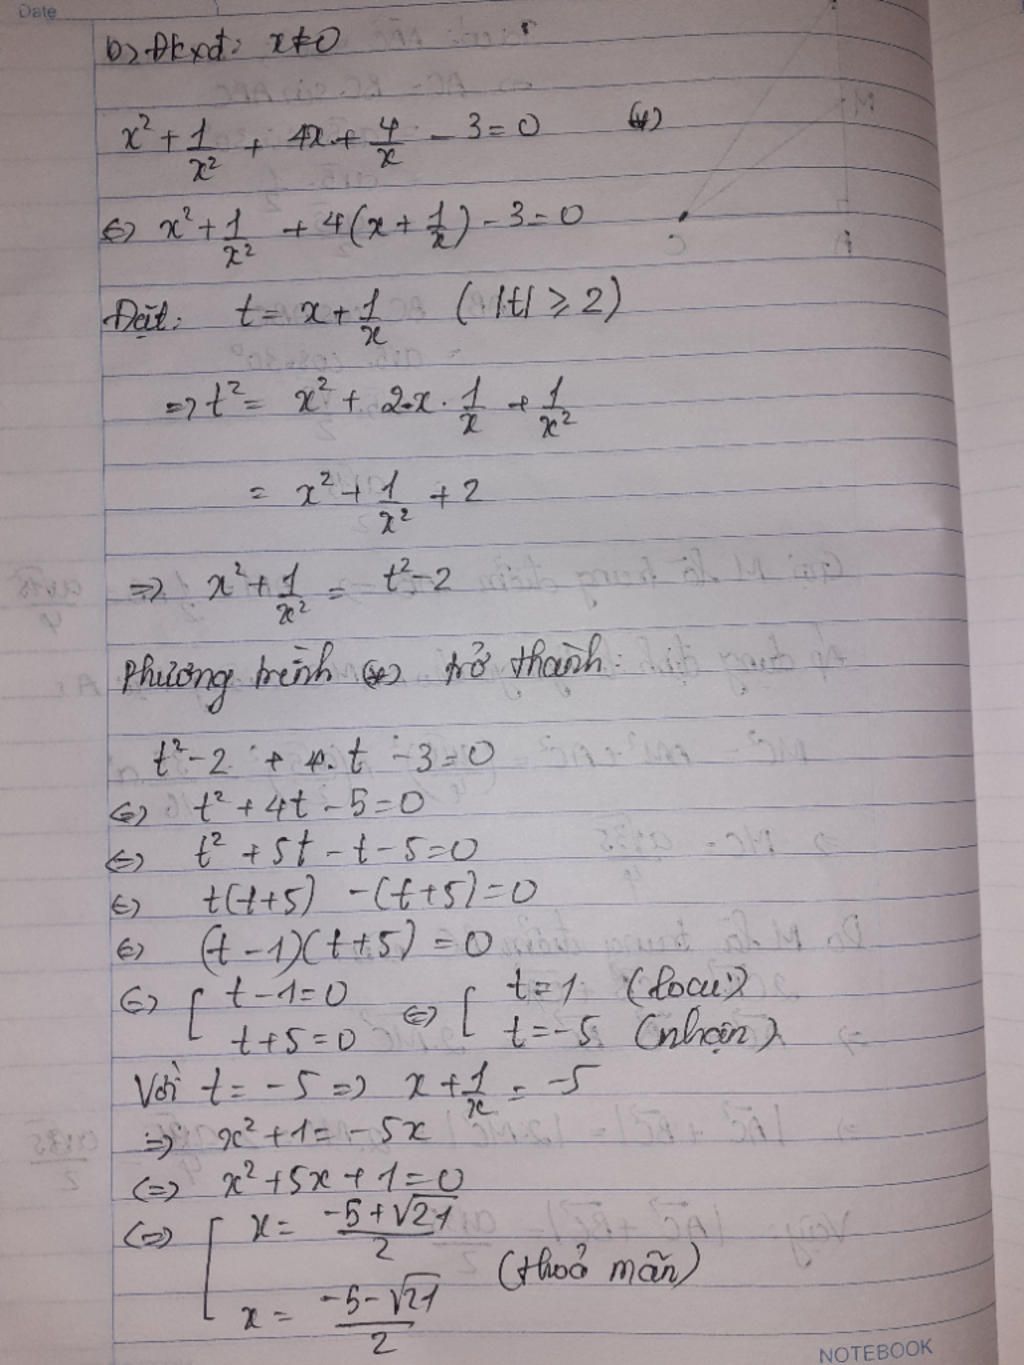 Date
b) Đkxđ: x ≠ 0
x² + 1/x² + 4x + 4/x - 3 = 0 (*)
⇔ x² + 1/x² + 4(x + 1/x) - 3 = 0
Đặt: t = x + 1/x (|t| ⩾ 2)
⇒ t² = x² + 2.x . 1/x + 1/x²
= x² + 1/x² + 2
⇒ x² + 1/x² = t² - 2
Phương trình (*) trở thành:
t² - 2 + 4. t - 3 = 0
⇔ t² + 4t - 5 = 0
⇔ t² + 5t - t - 5 = 0
⇔ t(t+5) - (t+5) = 0
⇔ (t - 1)(t + 5) = 0
⇔ [ t - 1 = 0 ⇔ [ t = 1 (loại)
t + 5 = 0 t = -5 (nhận)
Với t = -5 ⇒ x + 1/x = -5
⇒ x² + 1 = -5x
⇔ x² + 5x + 1 = 0
⇔ [ x = (-5 + √21)/2
(thoả mãn)
x = (-5 - √21)/2
NOTEBOOK